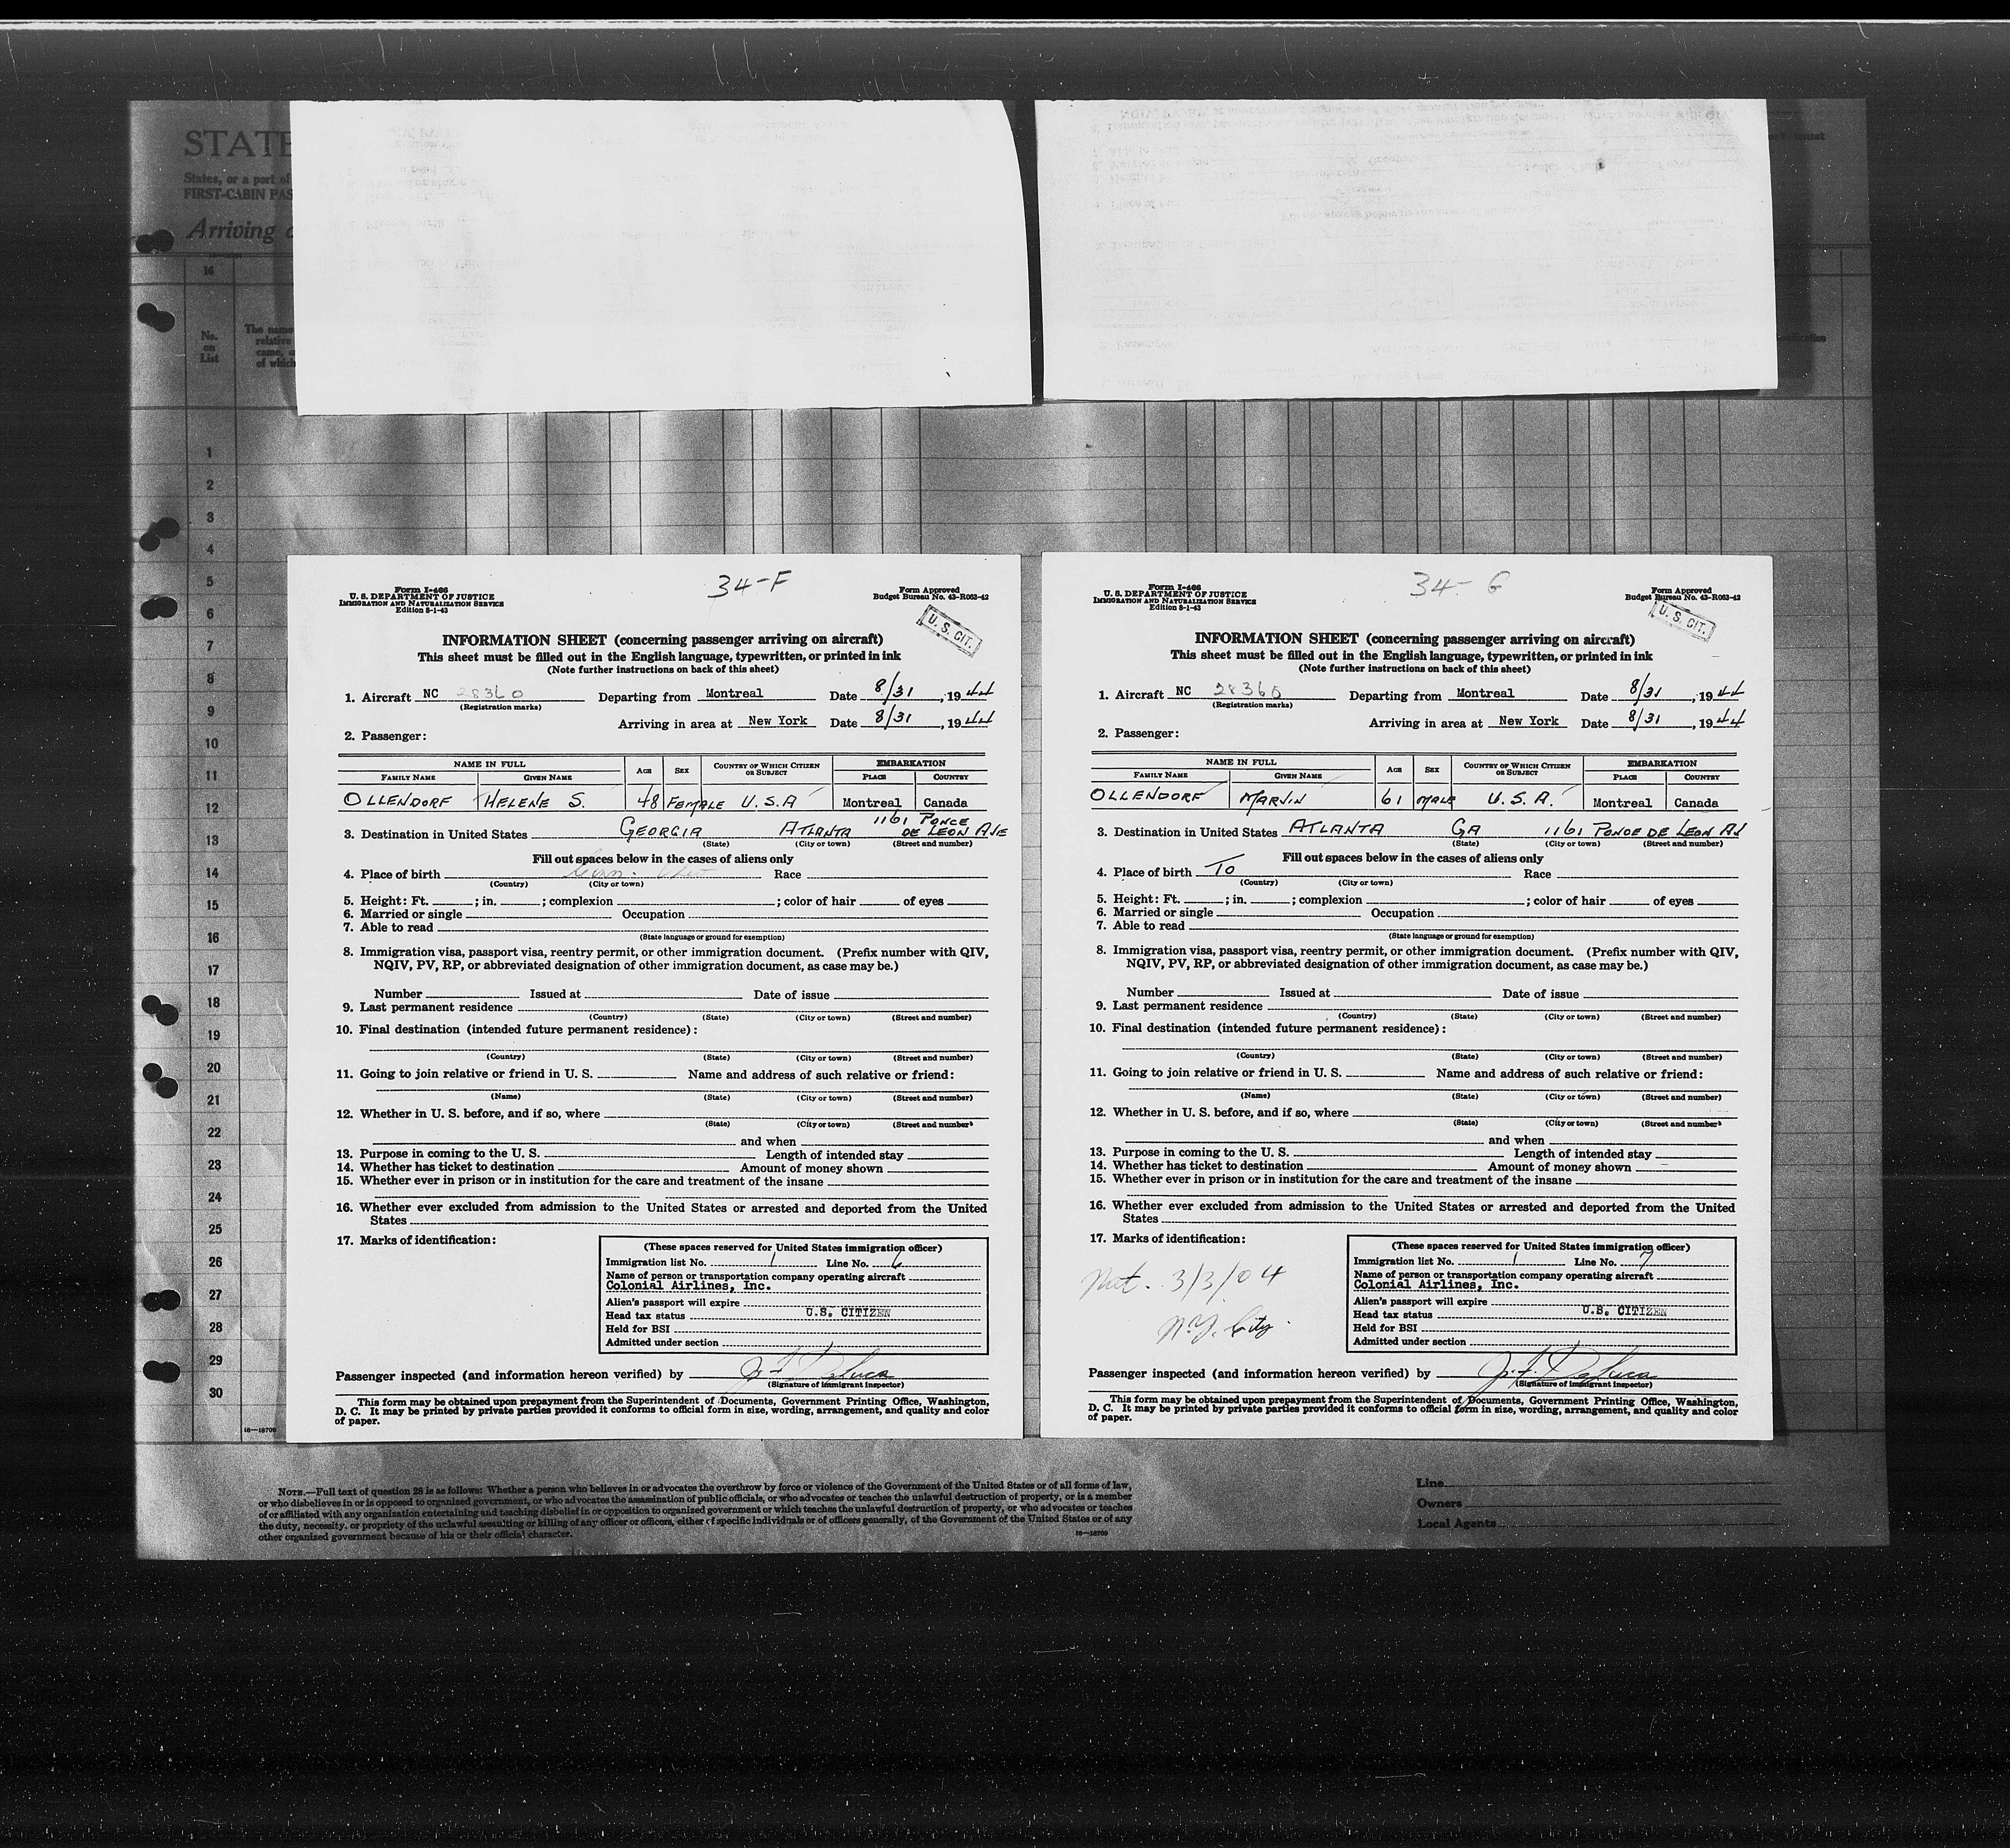 STATE
States, or a part of
FIRST-CABIN PAS
Arriving
16
No.
on
List
The name
relative
came, o
of which
1
2
3
4
5
6
7
8
9
10
11
12
13
14
15
16
17
18
19
20
21
22
23
24
25
26
27
28
29
30
16—18709
34-F
Form I-466
U. S. DEPARTMENT OF JUSTICE
IMMIGRATION AND NATURALIZATION SERVICE
Edition 8-1-43
Form Approved
Budget Bureau No. 43-R063-42
U. S. CIT.
INFORMATION SHEET (concerning passenger arriving on aircraft)
This sheet must be filled out in the English language, typewritten, or printed in ink
(Note further instructions on back of this sheet)
1. Aircraft NC 28360 Departing from Montreal Date 8/31, 1944
(Registration marks)
Arriving in area at New York Date 8/31, 1944
2. Passenger:
NAME IN FULL AGE SEX COUNTRY OF WHICH CITIZEN OR SUBJECT EMBARKATION
FAMILY NAME GIVEN NAME PLACE COUNTRY
OLLENDORF HELENE S. 48 FEMALE U.S.A Montreal Canada
3. Destination in United States GEORGIA ATLANTA 1161 PONCE DE LEON AVE
(State) (City or town) (Street and number)
Fill out spaces below in the cases of aliens only
4. Place of birth Race
(Country) (City or town)
5. Height: Ft. ; in. ; complexion ; color of hair of eyes
6. Married or single Occupation
7. Able to read
(State language or ground for exemption)
8. Immigration visa, passport visa, reentry permit, or other immigration document. (Prefix number with QIV,
NQIV, PV, RP, or abbreviated designation of other immigration document, as case may be.)
Number Issued at Date of issue
9. Last permanent residence
(Country) (State) (City or town) (Street and number)
10. Final destination (intended future permanent residence):
(Country) (State) (City or town) (Street and number)
11. Going to join relative or friend in U. S. Name and address of such relative or friend:
(Name) (State) (City or town) (Street and number)
12. Whether in U. S. before, and if so, where
(State) (City or town) (Street and number)
and when
13. Purpose in coming to the U. S. Length of intended stay
14. Whether has ticket to destination Amount of money shown
15. Whether ever in prison or in institution for the care and treatment of the insane
16. Whether ever excluded from admission to the United States or arrested and deported from the United
States
17. Marks of identification:
(These spaces reserved for United States immigration officer)
Immigration list No. 1 Line No. 6
Name of person or transportation company operating aircraft
Colonial Airlines, Inc.
Alien's passport will expire
Head tax status U.S. CITIZEN
Held for BSI
Admitted under section
Passenger inspected (and information hereon verified) by J. F. DeLuca
(Signature of immigrant inspector)
This form may be obtained upon prepayment from the Superintendent of Documents, Government Printing Office, Washington,
D. C. It may be printed by private parties provided it conforms to official form in size, wording, arrangement, and quality and color
of paper.
34-G
Form I-466
U. S. DEPARTMENT OF JUSTICE
IMMIGRATION AND NATURALIZATION SERVICE
Edition 8-1-43
Form Approved
Budget Bureau No. 43-R063-42
U. S. CIT.
INFORMATION SHEET (concerning passenger arriving on aircraft)
This sheet must be filled out in the English language, typewritten, or printed in ink
(Note further instructions on back of this sheet)
1. Aircraft NC 28360 Departing from Montreal Date 8/31, 1944
(Registration marks)
Arriving in area at New York Date 8/31, 1944
2. Passenger:
NAME IN FULL AGE SEX COUNTRY OF WHICH CITIZEN OR SUBJECT EMBARKATION
FAMILY NAME GIVEN NAME PLACE COUNTRY
OLLENDORF MARVIN 61 MALE U.S.A. Montreal Canada
3. Destination in United States ATLANTA GA 1161 PONCE DE LEON AV
(State) (City or town) (Street and number)
Fill out spaces below in the cases of aliens only
4. Place of birth TO Race
(Country) (City or town)
5. Height: Ft. ; in. ; complexion ; color of hair of eyes
6. Married or single Occupation
7. Able to read
(State language or ground for exemption)
8. Immigration visa, passport visa, reentry permit, or other immigration document. (Prefix number with QIV,
NQIV, PV, RP, or abbreviated designation of other immigration document, as case may be.)
Number Issued at Date of issue
9. Last permanent residence
(Country) (State) (City or town) (Street and number)
10. Final destination (intended future permanent residence):
(Country) (State) (City or town) (Street and number)
11. Going to join relative or friend in U. S. Name and address of such relative or friend:
(Name) (State) (City or town) (Street and number)
12. Whether in U. S. before, and if so, where
(State) (City or town) (Street and number)
and when
13. Purpose in coming to the U. S. Length of intended stay
14. Whether has ticket to destination Amount of money shown
15. Whether ever in prison or in institution for the care and treatment of the insane
16. Whether ever excluded from admission to the United States or arrested and deported from the United
States
17. Marks of identification:
Nat. 3/3/04
N.Y. City.
(These spaces reserved for United States immigration officer)
Immigration list No. 1 Line No. 7
Name of person or transportation company operating aircraft
Colonial Airlines, Inc.
Alien's passport will expire
Head tax status U.S. CITIZEN
Held for BSI
Admitted under section
Passenger inspected (and information hereon verified) by J. F. DeLuca
(Signature of immigrant inspector)
This form may be obtained upon prepayment from the Superintendent of Documents, Government Printing Office, Washington,
D. C. It may be printed by private parties provided it conforms to official form in size, wording, arrangement, and quality and color
of paper.
NOTE.—Full text of question 28 is as follows: Whether a person who believes in or advocates the overthrow by force or violence of the Government of the United States or of all forms of law,
or who disbelieves in or is opposed to organized government, or who advocates the assassination of public officials, or who advocates or teaches the unlawful destruction of property, or is a member
of or affiliated with any organization entertaining and teaching disbelief in or opposition to organized government or which teaches the unlawful destruction of property, or who advocates or teaches
the duty, necessity, or propriety of the unlawful assaulting or killing of any officer or officers, either of specific individuals or of officers generally, of the Government of the United States or of any
other organized government because of his or their official character.
16—18709
Line
Owners
Local Agents